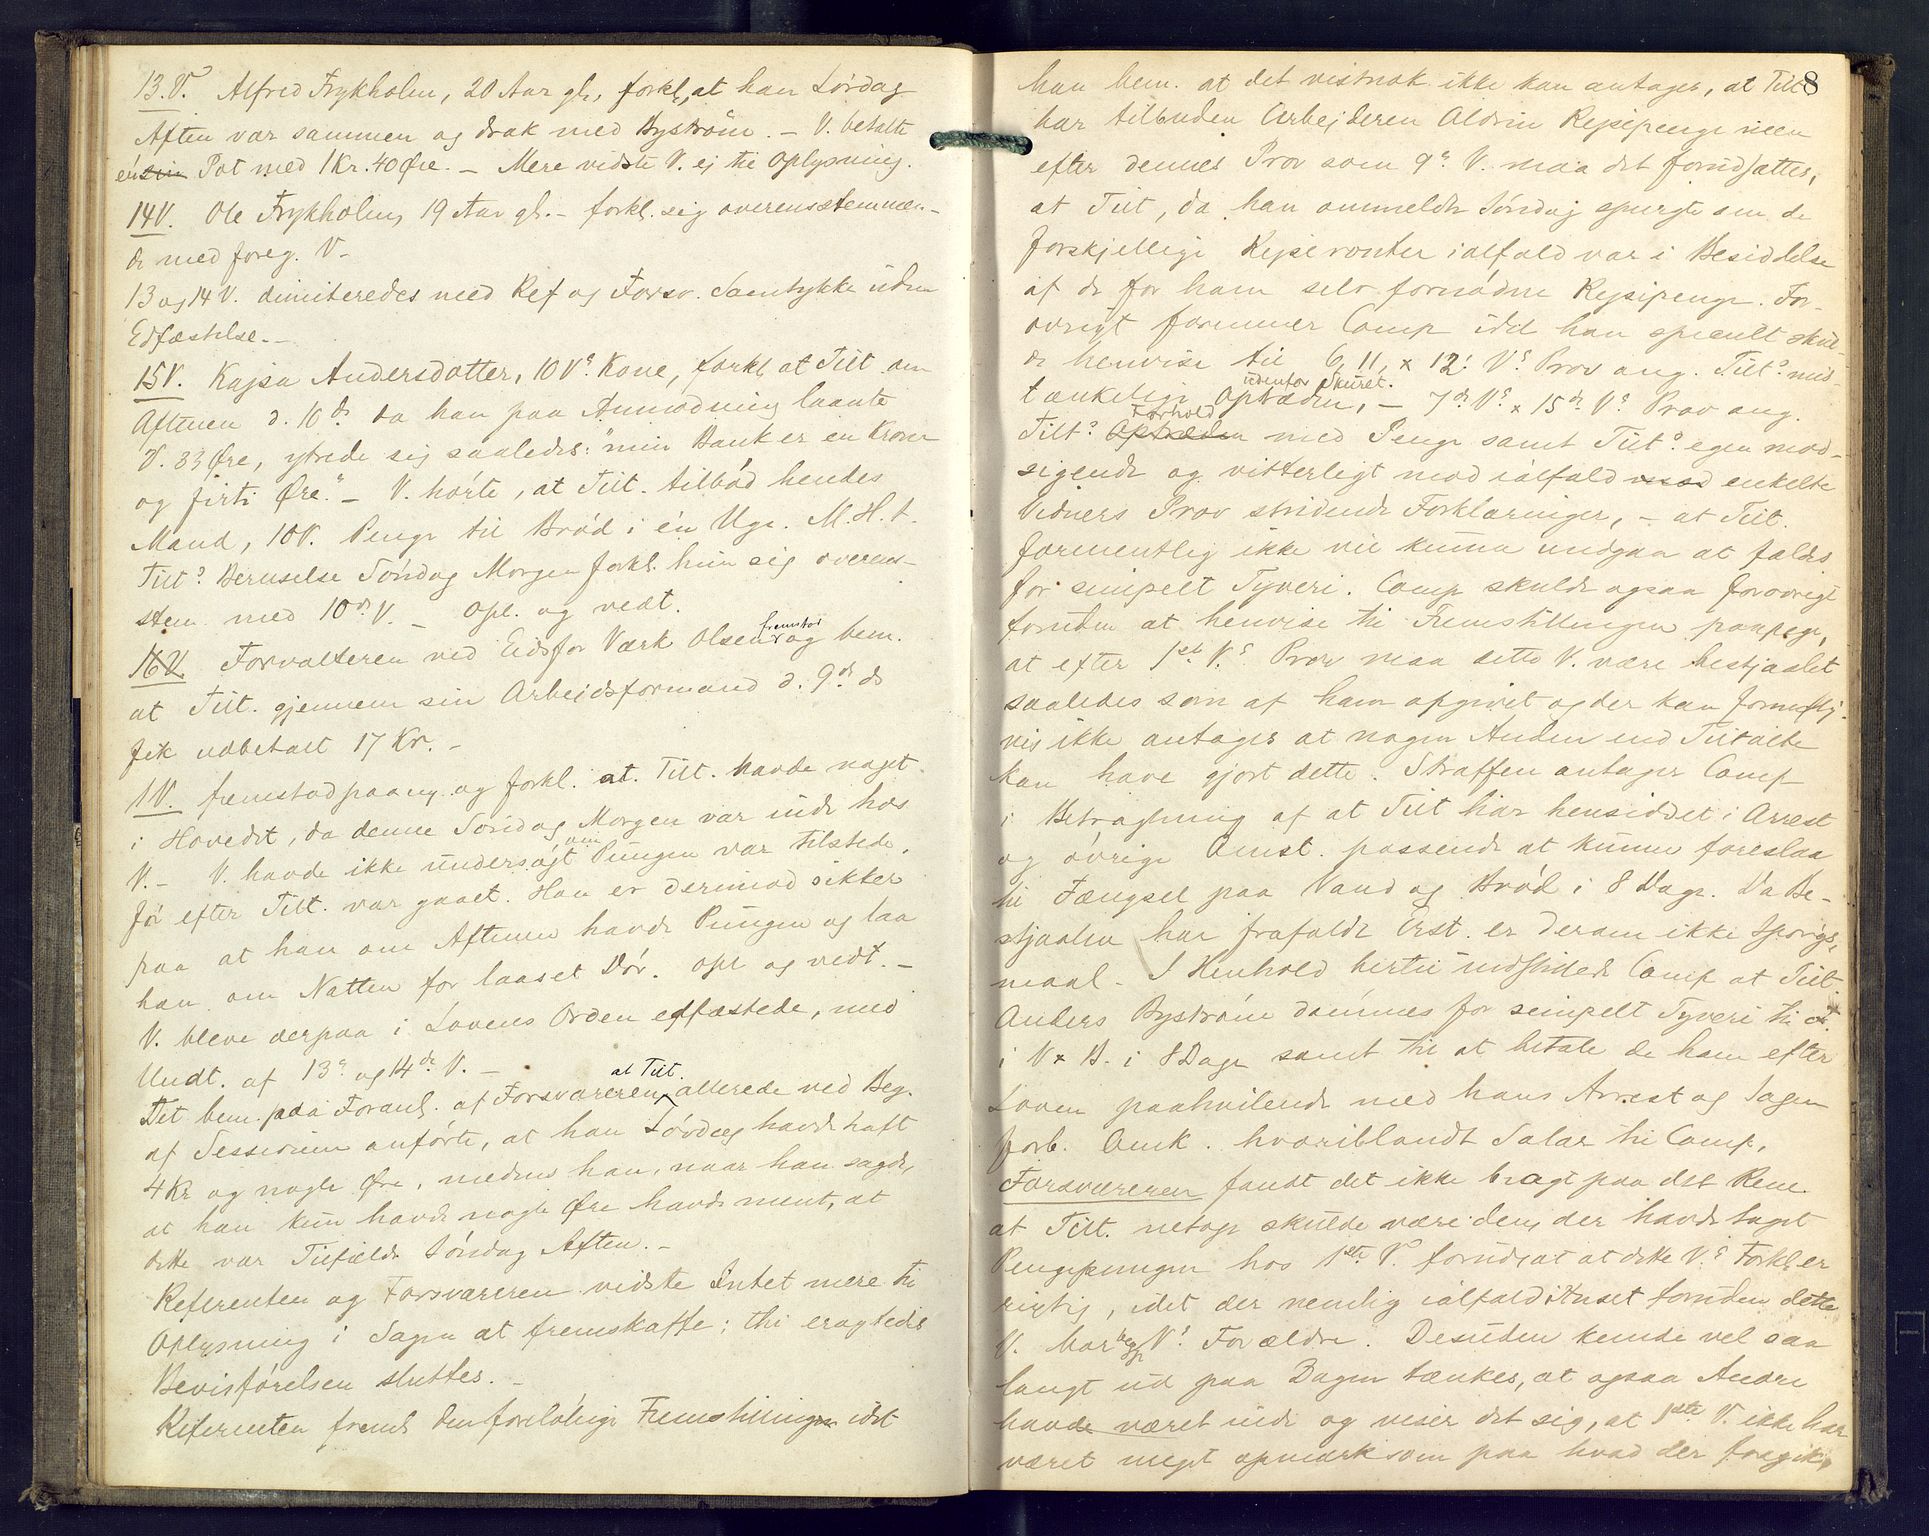 13.V. Alfred Frykholm, 20 Aar gl., forkl. at han Lørdag
Aften var sammen og drak med Byström. – V. betalte
én sin Pot med 1 Kr. 40 Øre. – Mere vidste V. ej til Oplysning.
14V. Ole Frykholm, 19 Aar gl. – forkl. sig overensstemmen-
de med foreg. V. –
13 og 14 V. dimiteredes med Ref og Forsv. Samtykke uden
Edfæstelse. –
15V. Kajsa Andersdotter, 10 Vs Kone, forkl. at Tilt om
Aftenen d. 10de da han paa Anmodning laante
V. 33 Øre, ytrede sig saaledes: "min Bank er en Krone
og firti Øre." – V. hørte, at Tilt. tilbød hendes
Mand, 10V. Penge til Brød i én Uge. M. H. t.
Tilts Beruselse Søndag Morgen forkl. hun sig overens-
stem. med 10de V. – Opl. og vedt.
16V. Forvalteren ved Eidsfos Værk Olsen fremstod og bem.
at Tilt. gjennem sin Arbejdsformand d. 9de ds
fik udbetalt 17 Kr. –
1V. fremstod paany og forkl. at Tilt. havde noget
i Hovedet, da denne Søndag Morgen var inde hos
V. – V. havde ikke undersøgt om Pungen var tilstede,
før efter Tilt. var gaaet. Han er derimod sikker
paa at han om Aftenen havde Pungen og laa
han om Natten for laaset Dør. Opl og vedt. –
V. bleve derpaa i Lovens Orden edfæstede, med
Undt. af 13de og 14de V. –
Det bem. paa Foranl. af Forsvareren, at Tilt. allerede ved Beg.
af Sessionen anførte, at han Lørdag havde haft
4 Kr og nogle Øre, medens han, naar han sagde,
at han kun havde nogle Øre havde ment, at
dette var Tilfælde Søndag Aften. –
Referenten og Forsvareren vidste Intet mere til
Oplysning i Sagen at fremskaffe; thi eragtedes
Bevisførelsen sluttet. –
Referenten fremk. den foreløbige Fremstilling idet
8
han bem. at det vistnok ikke kan antages, at Tilt
har tilbuden Arbejderen Aldrin Rejsepenge men
efter dennes Prov som 9de V. maa det forudsættes,
at Tilt, da han ommeldte Søndag spurgte om de
forskjellige Rejserouter ialfald var i Besiddelse
af de for ham selv fornødne Rejsepenge. For-
øvrigt formener Comp idet han specielt skul-
de henvise til 6, 11, x 12: Vs Prov ang. Tilts mis-
tænkelige Optræden udenfor Skuret, – 7de Vs x 15de Vs Prov ang.
Tilts Optræden Forhold med Penge samt Tilts egen mod-
sigende og vitterligt mod ialfald mod enkelte
Vidners Prov stridende Forklaringer, – at Tilt.
formentlig ikke vil kunne undgaa at fældes
for simpelt Tyveri. Comp skulde ogsaa forøvrigt
foruden at henvise til Fremstillingen paapege,
at efter 1ste Vs Prov maa dette V. være bestjaalet
saaledes som af ham opgivet og der kan fornuftig-
vis ikke antages at nogen Anden end Tiltalte
kan have gjort dette. Straffen antager Comp
i Betragtning af at Tilt har hensiddet i Arrest
og øvrige Omst. passende at kunne foreslaa
til Fængsel paa Vand og Brød i 8 Dage. Da Be-
stjaalne har frafaldt Erst. er derom ikke Spørgs-
maal. – I Henhold hertil indstillede Comp at Tilt.
Anders Byström dømmes for simpelt Tyveri til
i V x B. i 8 Dage samt til at betale de ham efter
Loven paahvilende med hans Arrest og Sagen
forb. Omk. hvoriblandt Salar til Comp.
Forsvareren fandt det ikke bragt paa det Rene
at Tilt. netop skulde være den, der havde taget
Pengepungen hos 1ste V. forudsat at dette Vs Forkl. er
rigtig, idet der nemlig ialfald i Huset foruden dette
V. bor Vs Forældre. Desuden kunde vel saa
langt ud paa Dagen tænkes, at ogsaa Andre
havde været inde og viser det sig, at 1ste V. ikke har
været meget opmærksom paa hvad der foregik,